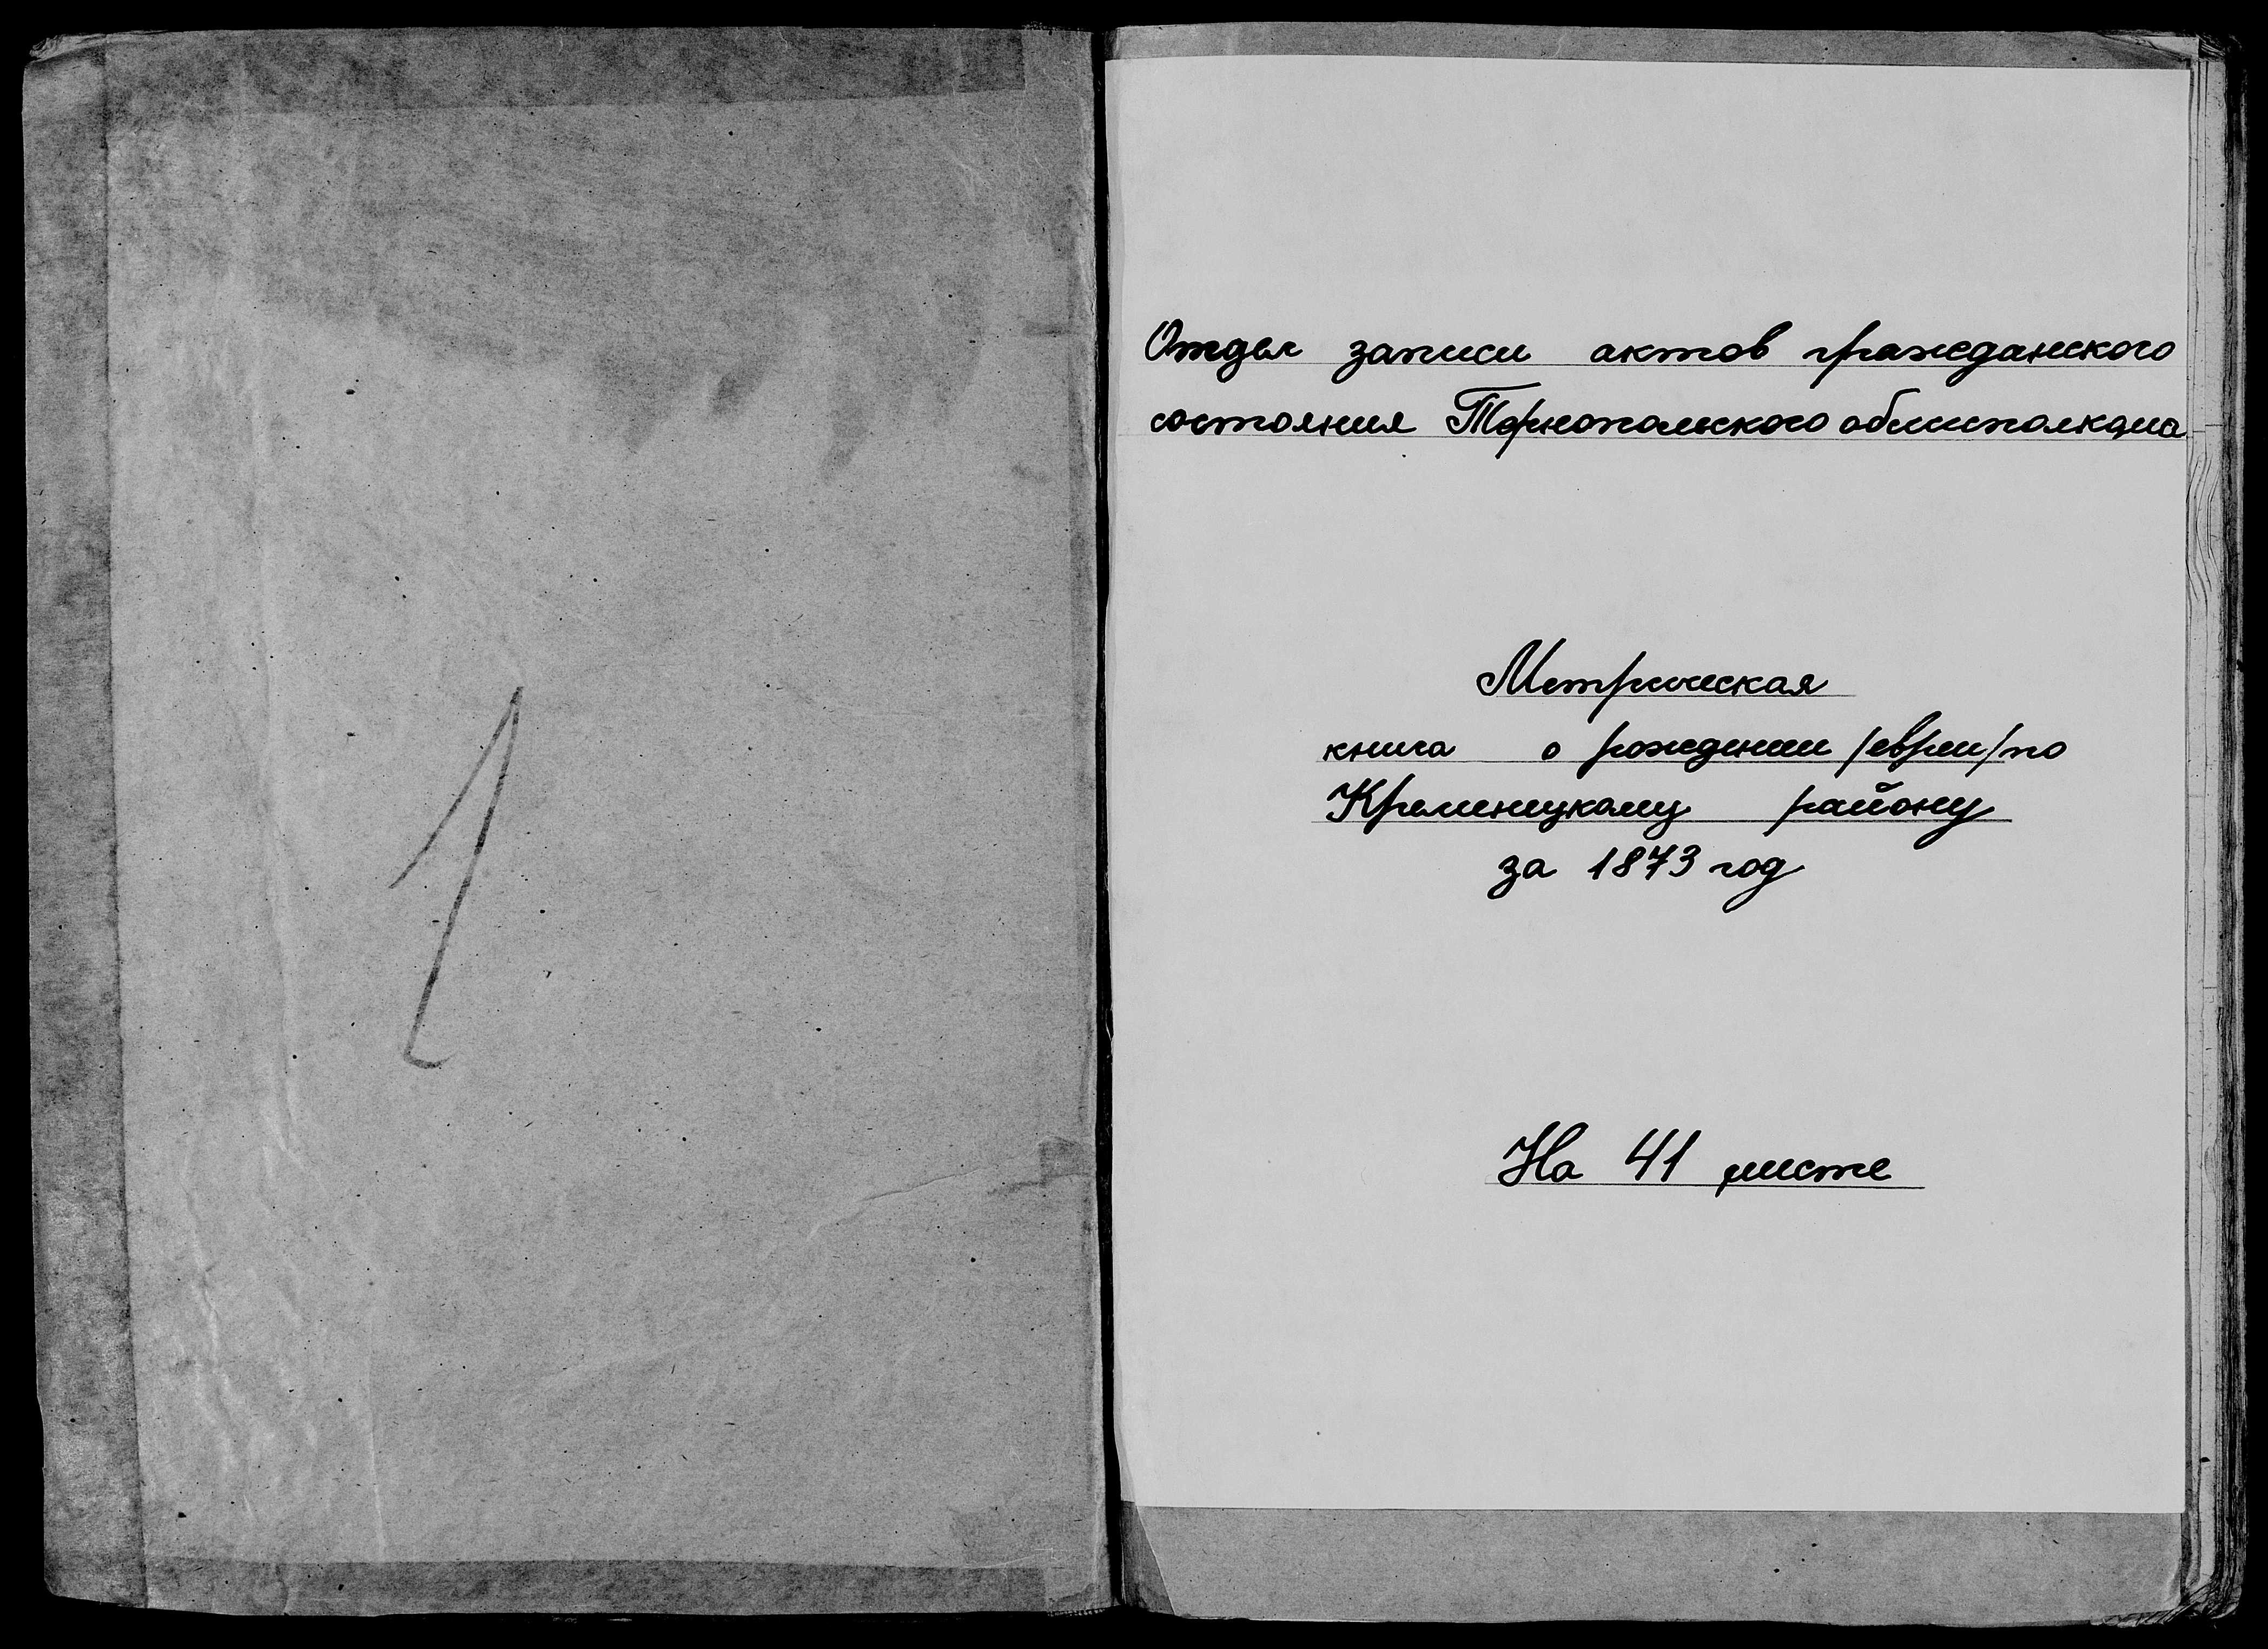 1
Отдел записи актов гражданского
состояния Тернопольского облисполкома
Метрическая
книга о рождении /евреи/ по
Кременецкому району
за 1873 год
На 41 листе